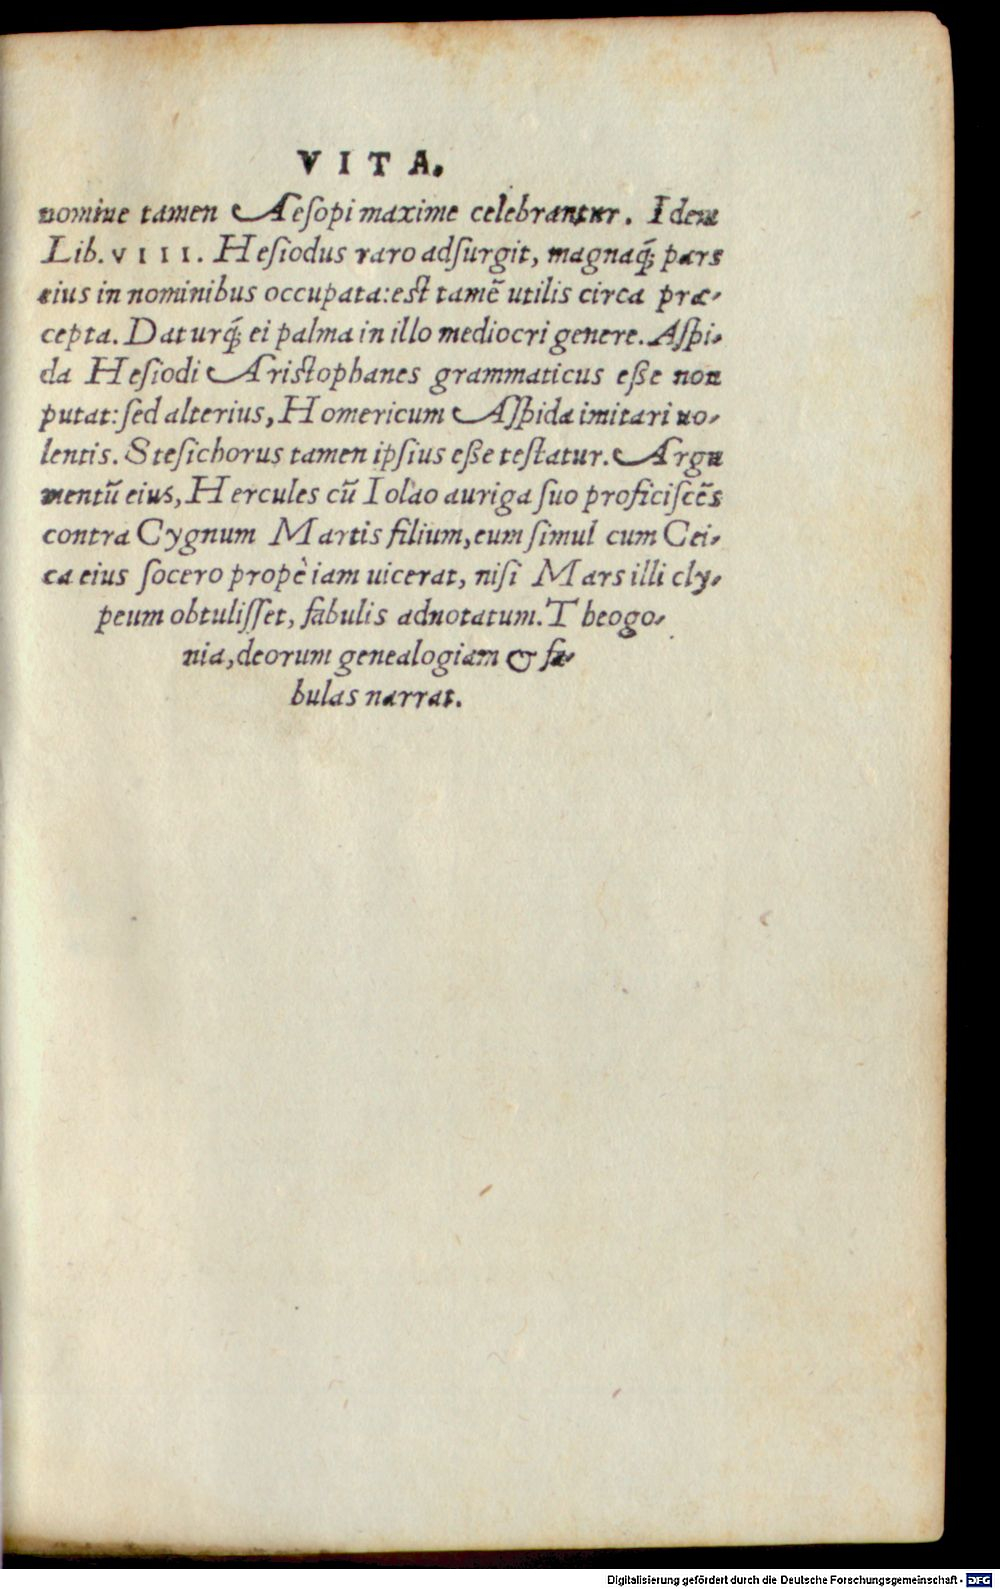 VITA.
nomine tamen Aeſopi maxime celebrantur. Idem
Lib. VIII. Heſiodus raro adſurgit, magnaq́; pars
eius in nominibus occupata: eſt tamē utilis circa præ-
cepta. Daturq́; ei palma in illo mediocri genere. Aſpi-
da Heſiodi Ariſtophanes grammaticus eſſe non
putat: ſed alterius, Homericum Aſpida imitari uo-
lentis. Steſichorus tamen ipſius eſſe teſtatur. Argu
mentū eius, Hercules cū Iolao auriga ſuo proficiſcēs
contra Cygnum Martis filium, eum ſimul cum Cei-
ca eius ſocero propè iam uicerat, niſi Mars illi cly-
peum obtuliſſet, fabulis adnotatum. Theogo-
nia, deorum genealogiam & fa-
bulas narrat.
Digitalisierung gefördert durch die Deutsche Forschungsgemeinschaft - DFG